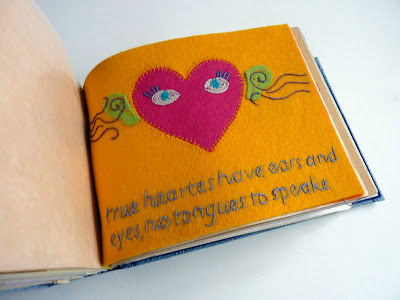 true heartes have ears and
eyes, no tongues to speake